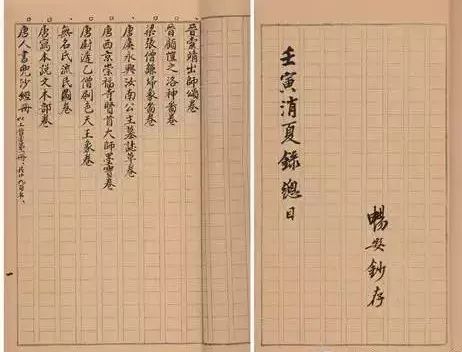 壬寅消夏錄總目
暢安鈔存
晉索靖出師頌卷
晉顧愷之洛神圖卷
梁張僧繇掃象圖卷
唐虞永興汝南公主墓誌草卷
唐西京崇福寺賢首大師墨寶卷
唐尉遲乙僧刷色天王象卷
無名氏流民圖卷
唐寫本說文木部卷
唐人書兜沙經冊
一